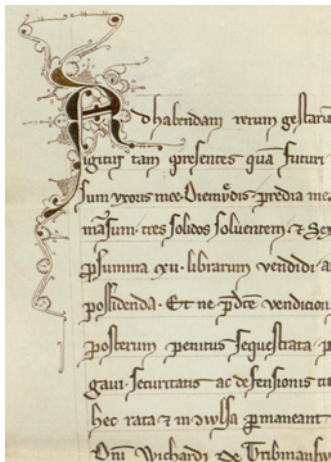 Ad habendam rerum gestaru
igitur tam presentes quā futuri
sum vxoris mee Diemůdis predia me
māsum tres solidos soluentem ⁊ Sex
ꝑ summa xii librarum vendidi a
possidenda. Et ne p̄dc̄e vendicion
posterum penitus sequestrata p
gaui. securitatis ac defensionis
hec rata ⁊ in ꝯwlsa ꝑmaneant
Dn̄i Wichardi de